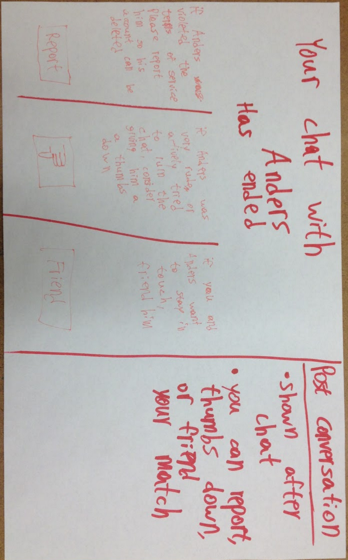 Your chat with
Anders
Has ended
If Anders
violated the
terms of service
please report
him so his
account can be
deleted
Report
If Anders was
very rude or
actively tried
to ruin the
chat, consider
giving him
a thumbs
down
If you and
Anders want
to stay in
touch,
friend him
Friend
Post conversation
• shown after
chat
• you can report,
thumbs down,
or friend
your match